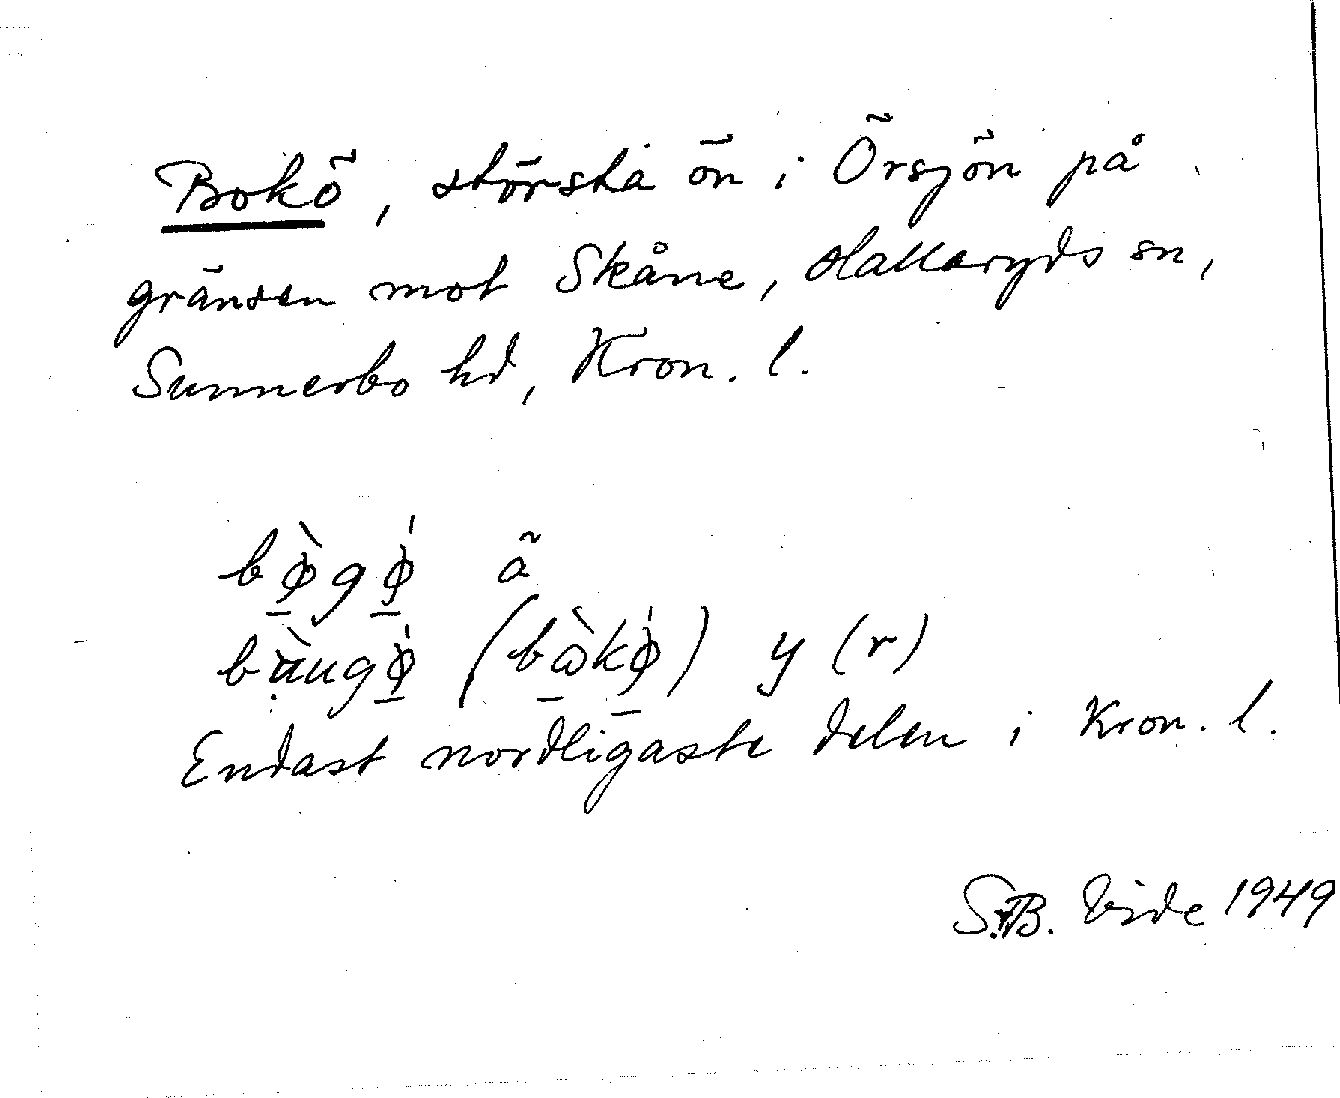 Bokö, största ön i Örsjön på
gränsen mot Skåne, Hallaryds sn,
Sunnerbo hd, Kron. l.
bø̀gǿ ä
bùugǿ (bὼkǿ) y (r)
Endast nordligaste delen i Kron. l.
S.B. Vide 1949